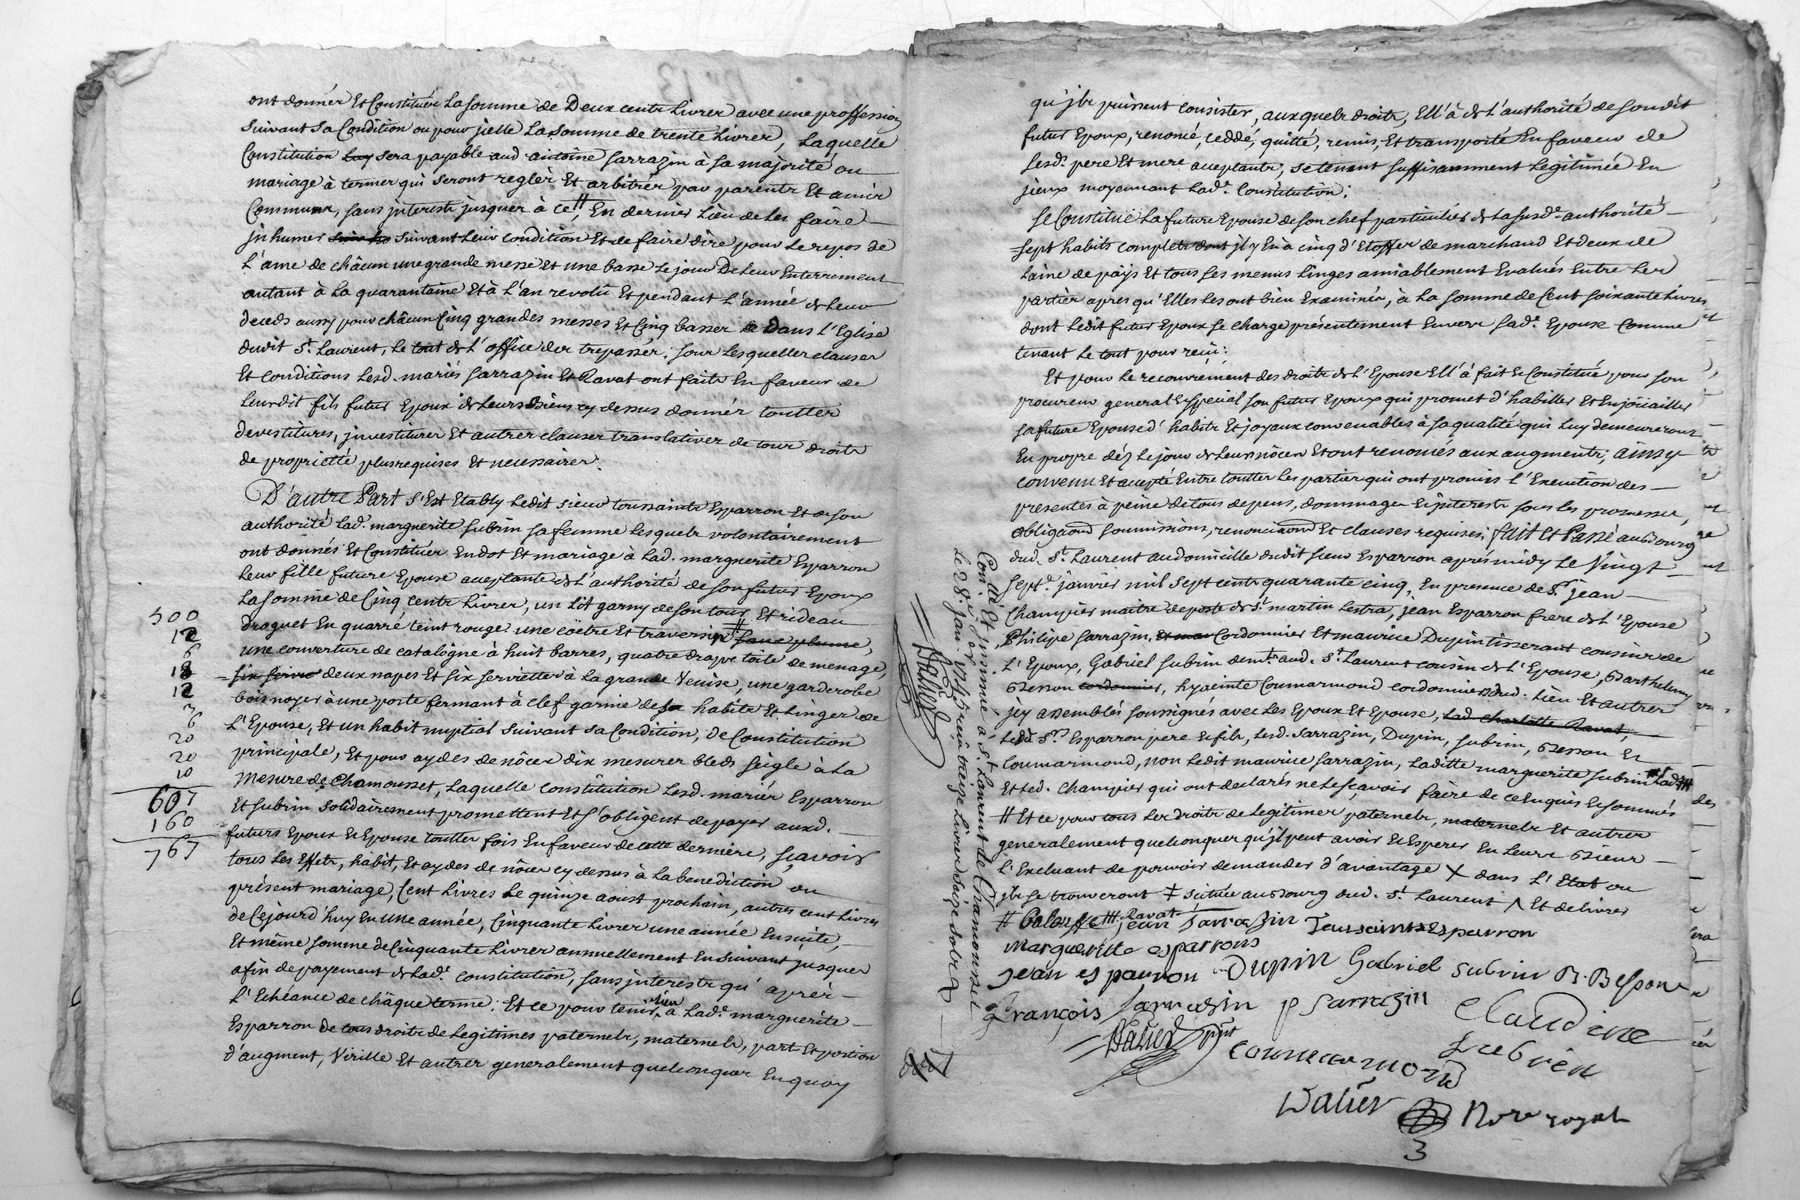 ont donnés Et Constitués La somme de Deux cents Livres avec une proffession
suivant sa Condition ou pour jcelle La somme de trente Livres, Laquelle
Constitution sera payable aud antoine sarrazin à sa majorité ou
mariage à termes qui seront reglés Et arbitrés par parents Et amis
Communs, sans jnterests jusques à ce #, En dernier Lieu de Les faire
jnhumer suivant Leur condition Et de faire dire pour Le repos de
L'ame de châcun une grande messe Et une basse Le jour De Leur Enterrement
autant à La quarantaine Et à L'an revolu Et pendant L'année de Leur
deceds aussy pour châcun Cinq grandes messes Et Cinq basses Dans L'Eglise
dudit St. Laurent, Le tout de L'office des trepassés; sous Lesquelles clauses
Et conditions Lesd. mariés sarrazin Et Ravat ont faits En faveur de
Leurdit fils futur Epoux de Leurs Biens cy dessus donnés touttes
devestitures, jnvestitures Et autres clauses translatives de tous droits
de proprietté plus requises Et necessaires.
D'autre Part s'Est Etably Ledit sieur toussaints Esparron Et de son
authorité Lad. marguerite subrin sa femme Lesquels volontairement
ont donnés Et Constitués En dot Et mariage à Lad. marguerite Esparron
Leur fille future Epouse aceptante de L'authorité de son futur Epoux
La somme de Cinq cents Livres, un Lit garny de son tour Et rideau
500
droguet En quarré teint rouge une coëtre Et traversin # sans plume,
12
une couverture de catalogne à huit barres, quatre draps toile de menage,
6
18
six servie deux napes Et six serviettes à La grande Venise, une garderobe
12
bois noyer à une porte fermant à clef garnie de habits Et Linges de
6
L'Epouse, Et un habit nuptial suivant sa Condition, de Constitution
20
principale, Et pour aydes de nôces dix mesures bleds seigle à La
20
10
mesure de Chamousset, Laquelle constitution Lesd. mariés Esparron
607
Et subrin solidairement promettent Et s'obligent de payer auxd.
160
futurs Epoux Et Epouse touttes fois En faveur de cette derniere, sçavoir
767
tous Les Effets, habit, Et aydes de nôces cy dessus à La benediction du
présent mariage, Cent Livres Le quinze aoust prochain, autres cent Livres
de Cejourd'huy En une année, Cinquante Livres une année Ensuite,
Et même somme de Cinquante Livres annuellement En suivant jusques
afin de payement de Lad. constitution, sans jnterests qu'après
L'Echéance de châque terme; Et ce pour tenir Lieu à Lad. marguerite
Esparron de tous droits de Legitimes paternels, maternels, part Et portion
d'augment, Virille Et autres generalement quelconques En quoy
qu'jls puissent consister, auxquels droits, Ell'à de L'authorité de son dit
futur Epoux, renoncé, ceddé, quitté, remis, Et transporté En faveur de
Lesd. pere Et mere aceptants; se tenant suffisamment Legitimée En
jceux moyennant Lad. Constitution;
Se Constitue La future Epouse de son chef particulier de La susd. authorité
sept habits complets dont jl y En a cinq d'Etoffes de marchand Et deux de
Laine de païs Et tous ses menus Linges amiablement Evalués Entre Les
parties apres qu'Elles Les ont bien Examinés, à La somme de Cent soixante Livres
dont Ledit futur Epoux se charge présentement Envers sad. Epouse Comme
tenant Le tout pour reçu;
Et pour Le recouvrement des droits de L'Epouse Ell'à fait Et Constitué pour son
procureur general Et special son futur Epoux qui promet d'habiller Et Enjoüailler
sa future Epouse d'habits Et joyaux convenables à sa qualité qui Luy demeureront
En propre dés Le jour de Leurs nôces Et ont renoncés aux augments; ainsy
convenu Et accepté Entre touttes Les parties qui ont promis L'Execution des
presentes à peine de tous depens, dommages Et jnterests sous Les promesses,
obligaõns soumissions, renonciaõns Et clauses requises; fait Et Passé au Bourg
dud. St. Laurent au domicille dudit sieur Esparron aprés midy Le Vingt
Sept. janvier mil sept cents quarante cinq, En presence de Sr. jean
champier maitre de poste de St martin Lestra, jean Esparron frere de L'Epouse
Philipe sarrazin, Cordonnier Et maurice Dupin tisserant cousins de
L'Epoux, Gabriel subrin demt. aud. St. Laurent cousin de L'Epouse, Barthelemy
Besson cordonnier, hyacinte Coumarmond cordonnier dud. Lieu Et autres
jcy assemblés soussignés avec Les Epoux Et Epouse, Lad charlotte Ravat,
Lesd. Srs Esparron pere Et fils, Lesd. sarrazin, Dupin, subrin, Besson Et
Coumarmond, non Ledit maurice sarrazin, Laditte marguerite subrin
Et Led. champier qui ont declarés ne Le sçavoir faire de ce Enquis Et sommés
# Et ce pour tous Les droits de Legitimes paternels, maternels Et autres
generalement quelconques qu'jl peut avoir Et Esperer En Leurs Biens
L'Excluant de pouvoir demander d'avantage X dans L'Etat ou
jls se trouveront ‡ scituée au Bourg dud. St. Laurent /\ Et delivrer
# Baloufle Ravat jean Sarrazin Toussaints esparron
Margueritte esparrons
Jean esparron Dupin Gabriel Subrin B. Besson
François Sarrazin p sarrazin Claudine
Subrin
Coumarmond
Nore royal
3
Conllé Et insinué à St. Laurent de Chamousset
Le 28e janvier 1745 reçu treize Livres seize sols